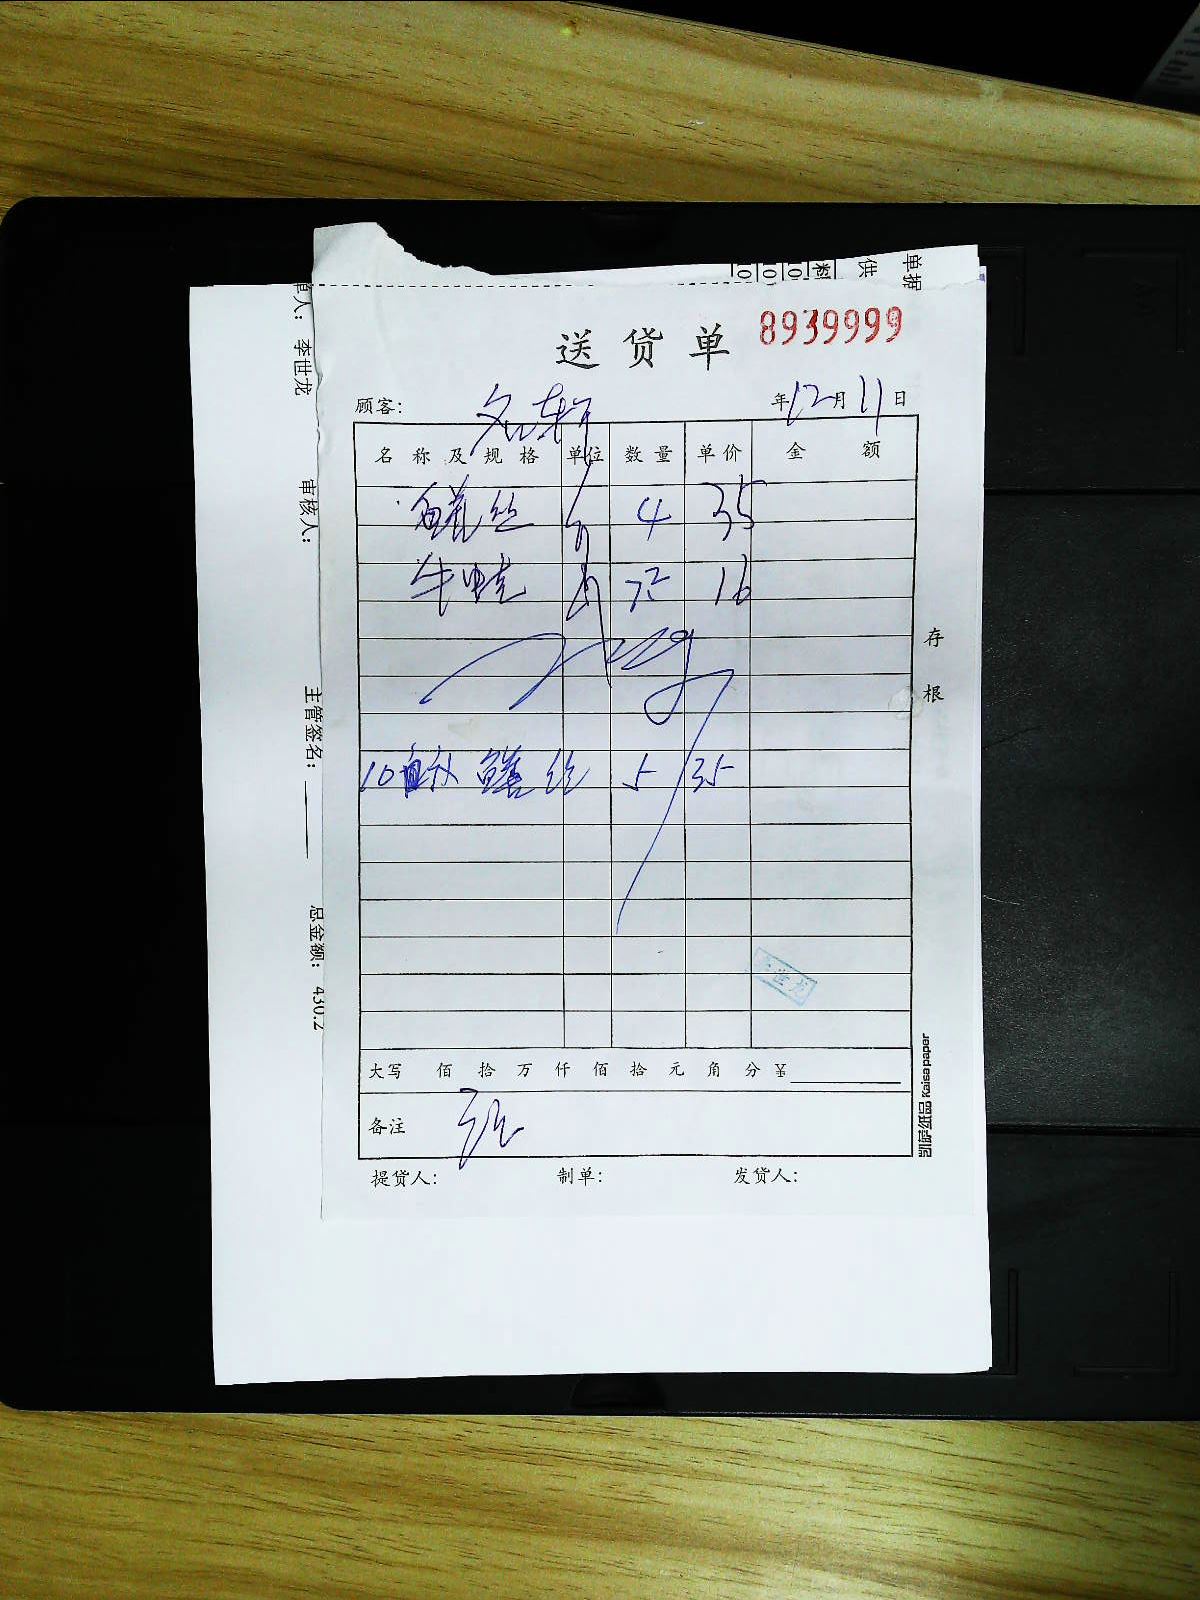 单据
供
送货单 8939999
顾客: 年12月11日
名称及规格 单位 数量 单价 金额
鳝丝 4 35
牛蛙 16
10号补 鳝丝 5 35
大写 佰 拾 万 仟 佰 拾 元 角 分 ¥
备注
提货人: 制单: 发货人:
存根
凯萨纸品 Kaisa paper
单人: 李世龙
审核人:
主管签名:
总金额: 430.2
世龙